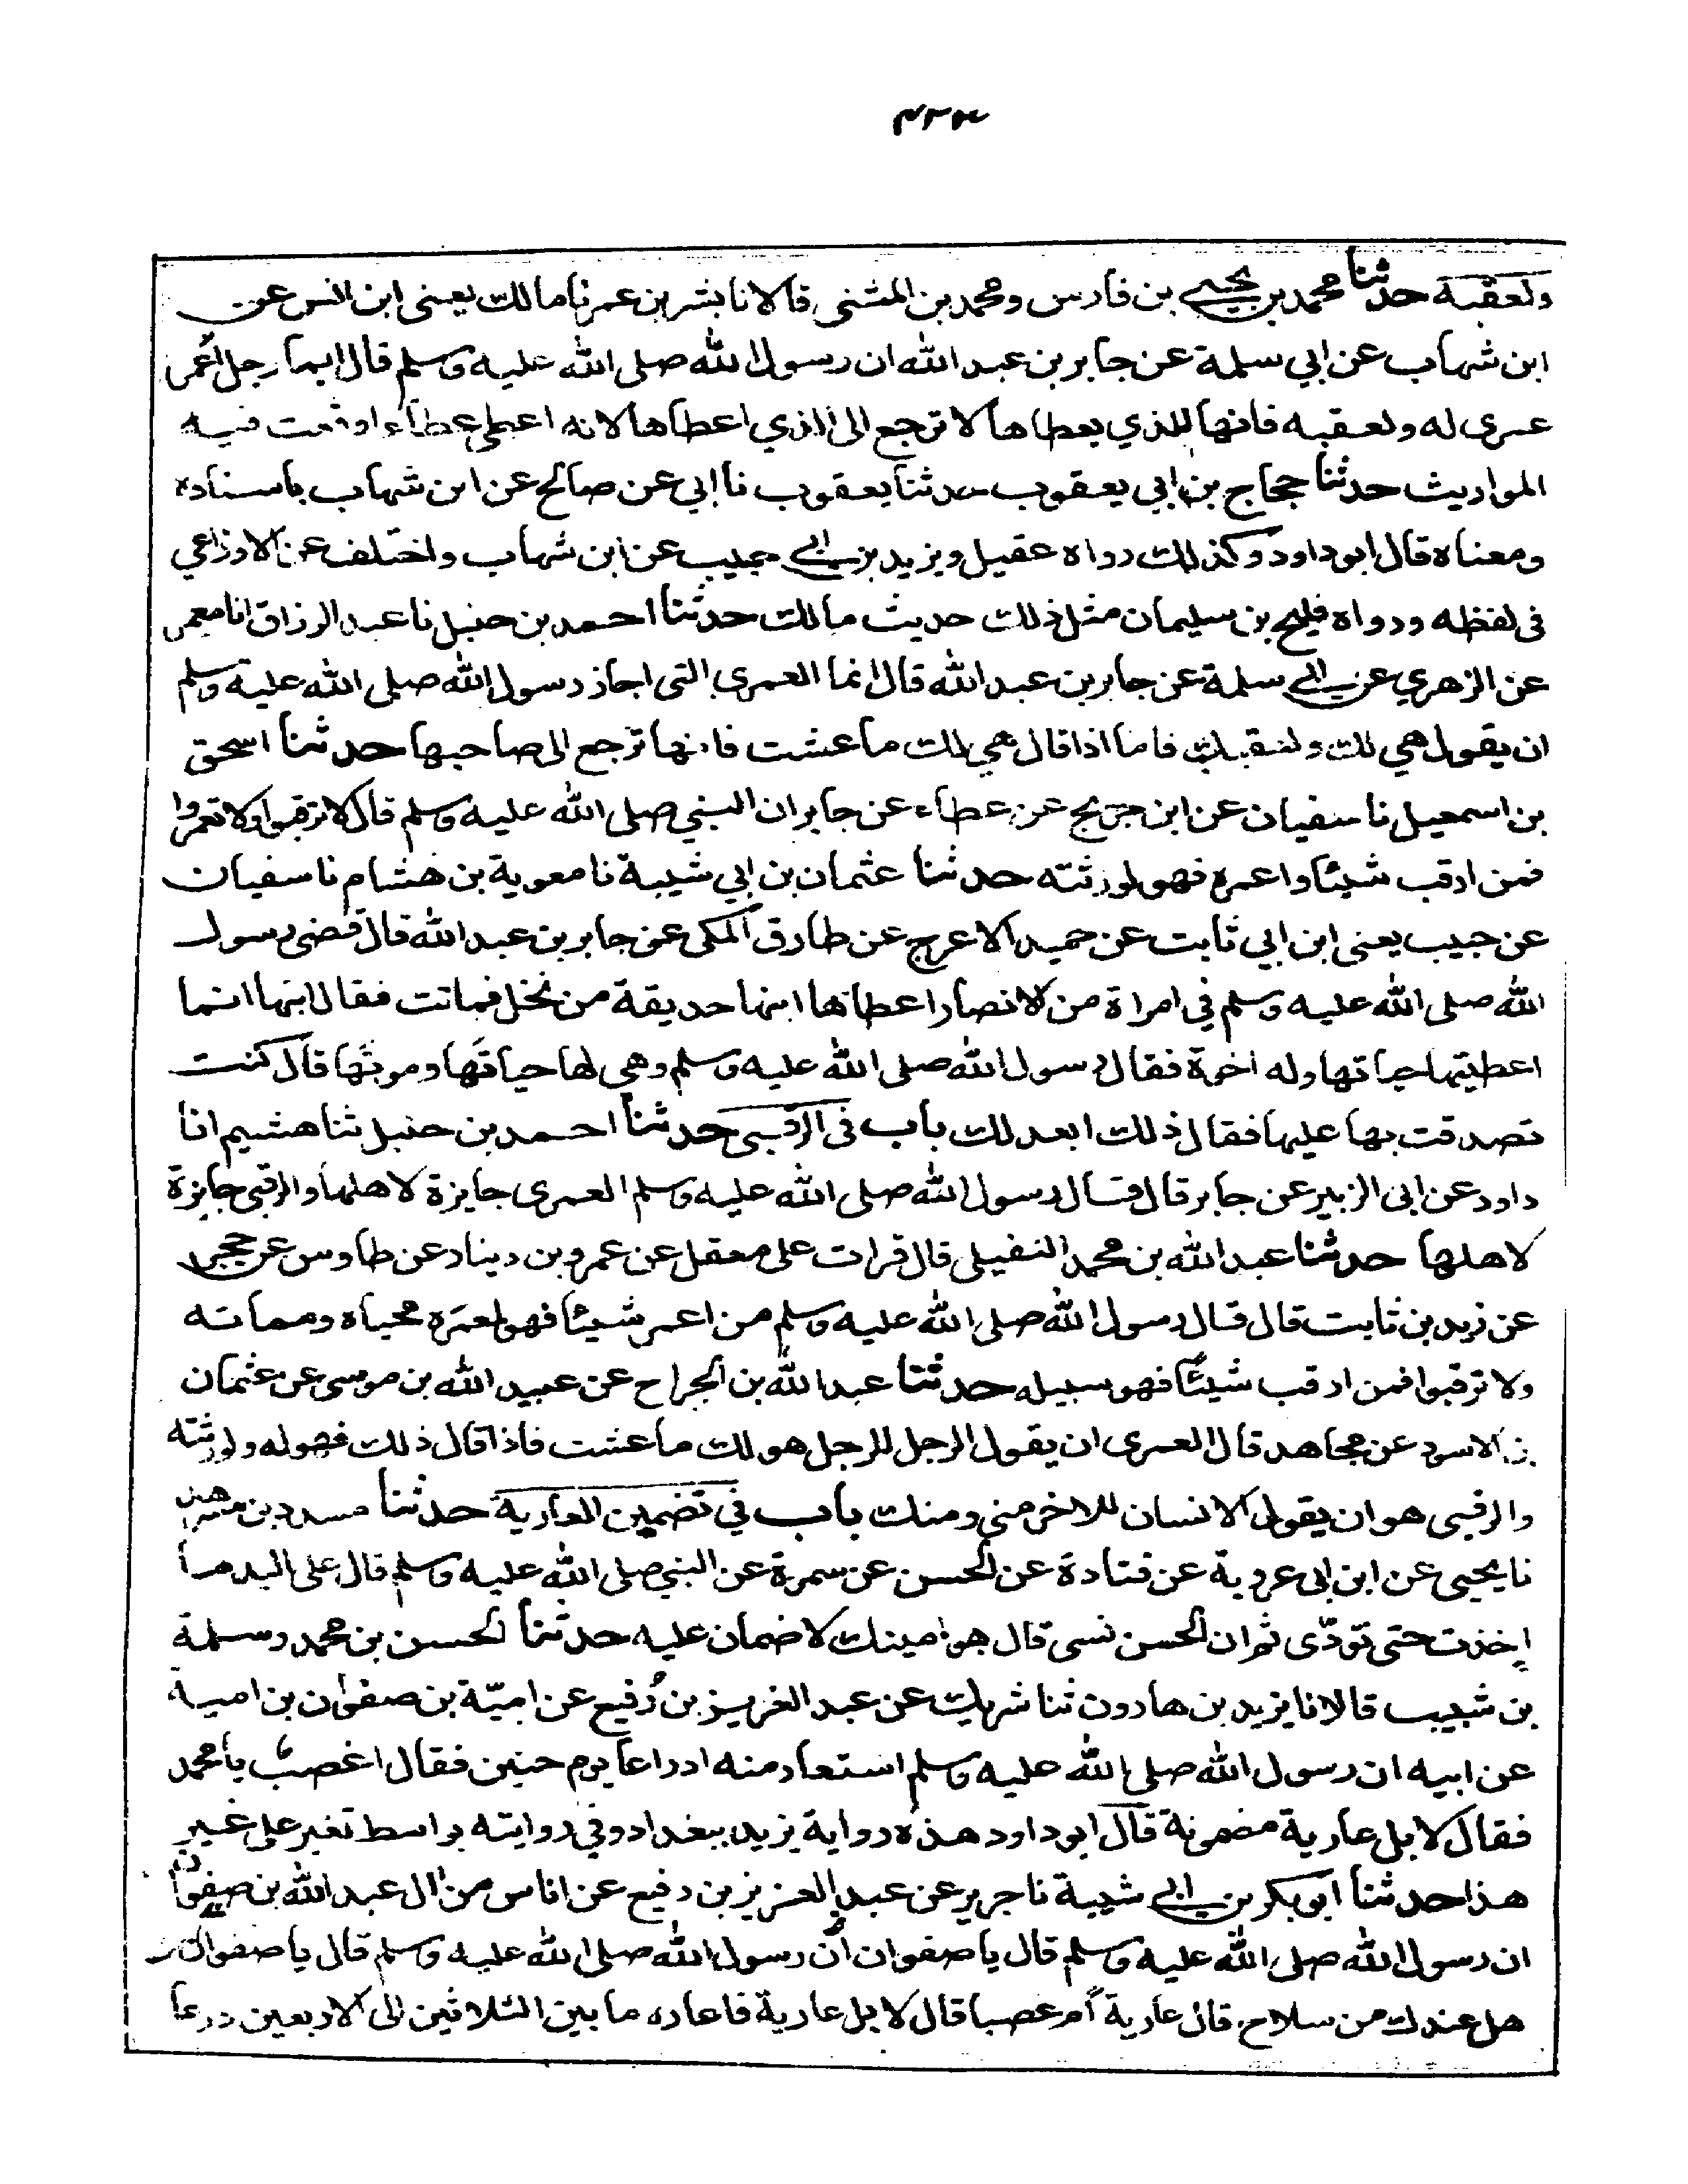 ولعقبه حدثنا محمد بن يحيى بن فارس ومحمد بن المثنى قالا نا بشر بن عمر نا مالك يعنى ابن انس عن
ابن شهاب عن ابي سلمة عن جابر بن عبد الله ان رسول الله صلى الله عليه وسلم قال ايما رجل اُعمر
عمرى له ولعقبه فانها للذي يعطاها لا ترجع الى الذي اعطاها لانه اعطى عطاء اوقعت فيه
المواريث حدثنا حجاج بن ابي يعقوب حدثنا يعقوب نا ابي عن صالح عن ابن شهاب باسناده
ومعناه قال ابو داود وكذلك رواه عقيل ويزيد بن ابي حبيب عن ابن شهاب واختلف عن الاوزاعي
فى لفظه ورواه فليح بن سليمان مثل ذلك حديث مالك حدثنا احمد بن حنبل نا عبد الرزاق انا معمر
عن الزهري عن ابي سلمة عن جابر بن عبد الله قال انما العمرى التى اجاز رسول الله صلى الله عليه وسلم
ان يقول هي لك ولعقبك فاما اذا قال هي لك ما عشت فانها ترجع الى صاحبها حدثنا اسحق
بن اسمعيل نا سفيان عن ابن جريج عن عطاء عن جابر ان النبي صلى الله عليه وسلم قال لا ترقبوا ولا تعمروا
فمن ارقب شيئا واعمره فهو لورثته حدثنا عثمان بن ابي شيبة نا معوية بن هشام نا سفيان
عن حبيب يعنى ابن ابي ثابت عن حميد الاعرج عن طارق المكى عن جابر بن عبد الله قال قضى رسول
الله صلى الله عليه وسلم في امراة من الانصار اعطاها ابنها حديقة من نخل فماتت فقال ابنها انما
اعطيتها حياتها وله اخوة فقال رسول الله صلى الله عليه وسلم وهي لها حياتها وموتها قال كنت
تصدقت بها عليها فقال ذلك ابعد لك باب فى الرقبى حدثنا احمد بن حنبل ثنا هشيم انا
داود عن ابى الزبير عن جابر قال قال رسول الله صلى الله عليه وسلم العمرى جايزة لاهلها والرقبى جايزة
لاهلها حدثنا عبد الله بن محمد النفيلى قال قرات على معقل عن عمرو بن دينار عن طاوس عن حجر
عن زيد بن ثابت قال قال رسول الله صلى الله عليه وسلم من اعمر شيئا فهو لمعمره محياه ومماته
ولا ترقبوا فمن ارقب شيئا فهو سبيله حدثنا عبد الله بن الجراح عن عبيد الله بن موسى عن عثمان
بن الاسود عن مجاهد قال العمرى ان يقول الرجل للرجل هو لك ما عشت فاذا قال ذلك فهو له ولورثته
والرقبى هو ان يقول الانسان للاخر منى ومنك باب في تضمين العارية حدثنا مسدد بن مسرهد
نا يحيى عن ابن ابى عروبة عن قتادة عن الحسن عن سمرة عن النبي صلى الله عليه وسلم قال على اليد ما
اخذت حتى تودّى ثم ان الحسن نسى قال هو امينك لا ضمان عليه حدثنا الحسن بن محمد وسلمة
بن شبيب قالا نا يزيد بن هارون ثنا شريك عن عبد العزيز بن رُفيع عن اميّة بن صفوان بن امية
عن ابيه ان رسول الله صلى الله عليه وسلم استعار منه ادراعا يوم حنين فقال اغصب يا محمد
فقال لا بل عارية مضمونة قال ابو داود هذه رواية يزيد ببغداد وفي روايته بواسط تغير على غير
هذا حدثنا ابو بكر بن ابي شيبة نا جرير عن عبد العزيز بن رفيع عن اناس من ال عبد الله بن صفوان
ان رسول الله صلى الله عليه وسلم قال يا صفوان ان رسول الله صلى الله عليه وسلم قال يا صفوان
هل عندك من سلاح قال عارية ام غصبا قال لا بل عارية فاعاره ما بين الثلاثين الى الاربعين درعا